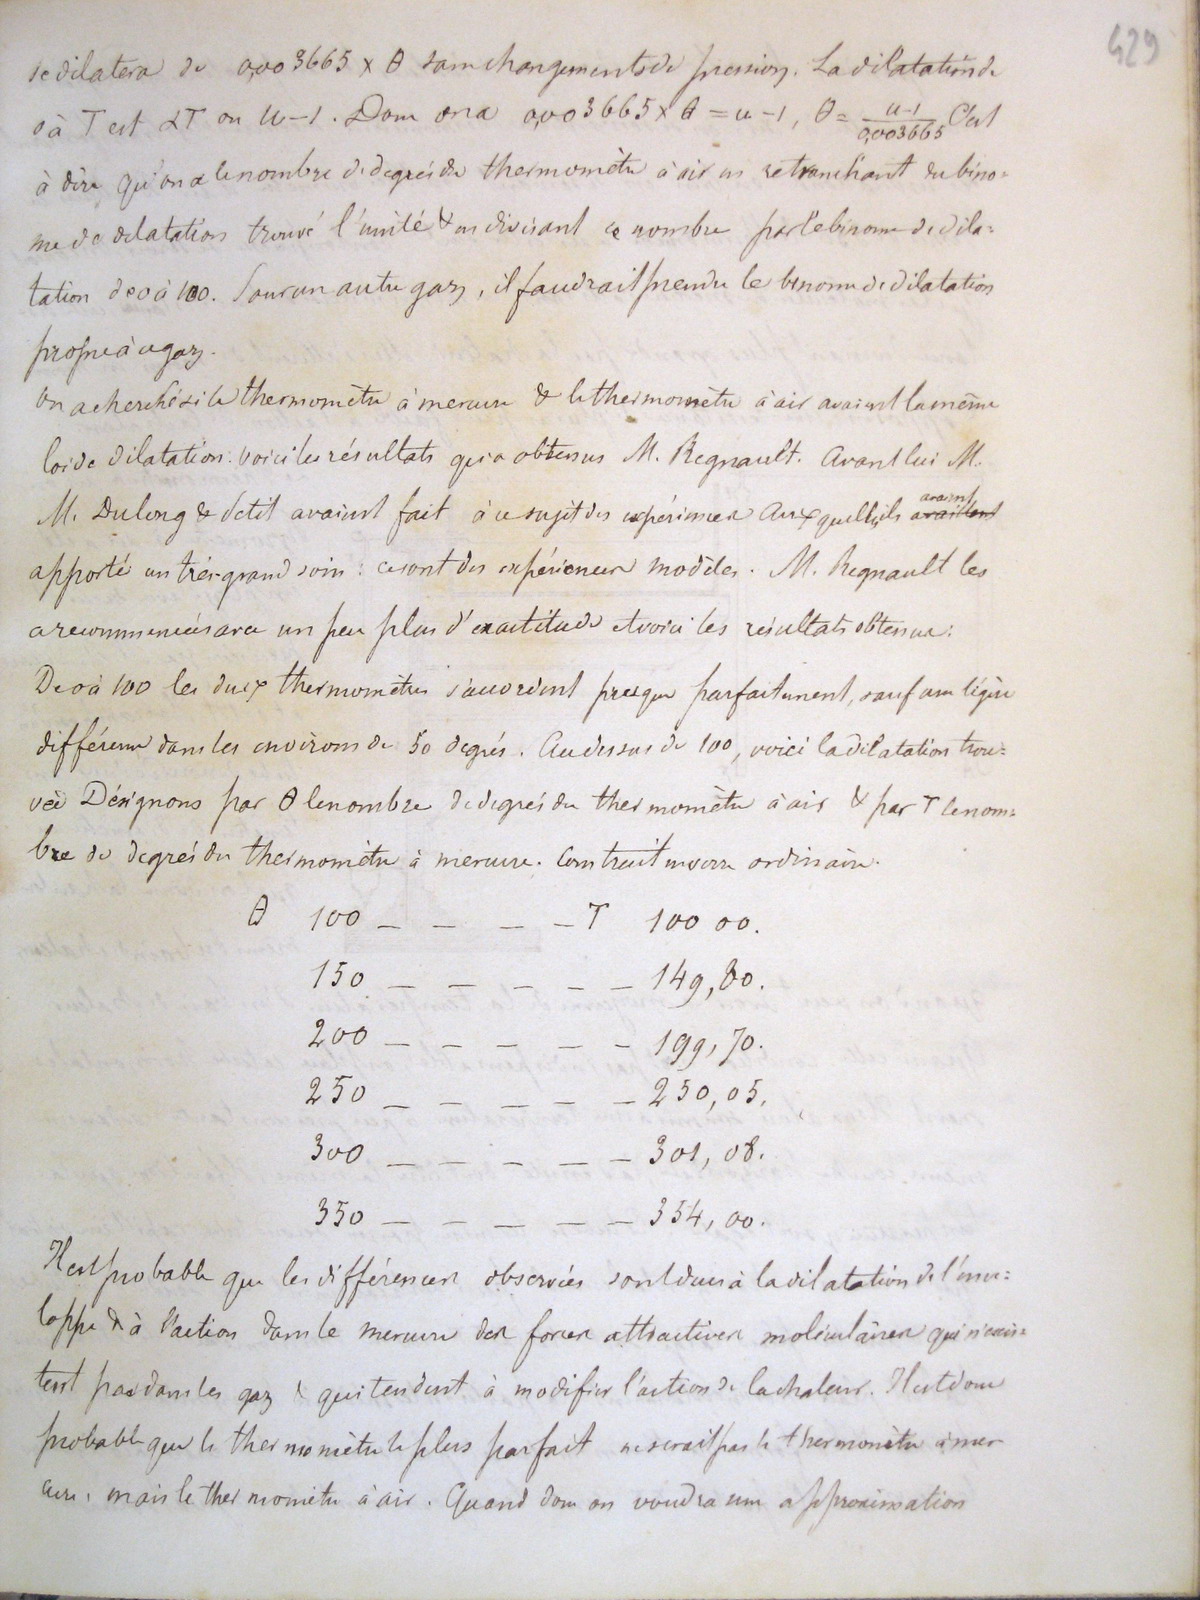 429
se dilatera de 0,003665 x θ sans changements de pression. La dilatation de
0 à T est αT ou u-1. Donc on a 0,003665 x θ = u-1, θ = u-1/0,003665 C'est
à dire qu'on a le nombre de degrés du thermomètre à air en retranchant du bino=
me de dilatation trouvé l'unité & en divisant ce nombre par le binome de dila=
tation de 0 à 100. Pour un autre gaz, il faudrait prendre le binome de dilatation
propre à ce gaz.
On a cherché si le thermomètre à mercure & le thermomètre à air avaient la même
loi de dilatation. Voici les résultats qu'a obtenus M. Regnault. Avant lui M.
M. Dulong & Petit avaient fait à ce sujet des expériences auxquelles ils avaient
apporté un très-grand soin : ce sont des expériences modèles. M. Regnault les
a recommencées avec un peu plus d'exactitude et voici les résultats obtenus :
De 0 à 100 les deux thermomètres s'accordent presque parfaitement, sauf une légère
différence dans les environs de 50 degrés. Au dessus de 100, voici la dilatation trou=
vée Désignons par θ le nombre de degrés du thermomètre à air & par T le nom=
bre de degrés du thermomètre à mercure. Construit en verre ordinaire.
θ 100 — — — — T 100 00.
150 — — — — — 149,80.
200 — — — — — 199,70.
250 — — — — — 250,05.
300 — — — — — 301,08.
350 — — — — — 354,00.
Il est probable que les différences observées sont dues à la dilatation de l'enve=
loppe & à l'action dans le mercure des forces attractives moléculaires qui n'exis=
tent pas dans les gaz & qui tendent à modifier l'action de la chaleur. Il est donc
probable que le thermomètre le plus parfait ne serait pas le thermomètre à mer
cure, mais le thermomètre à air. Quand donc on voudra une approximation